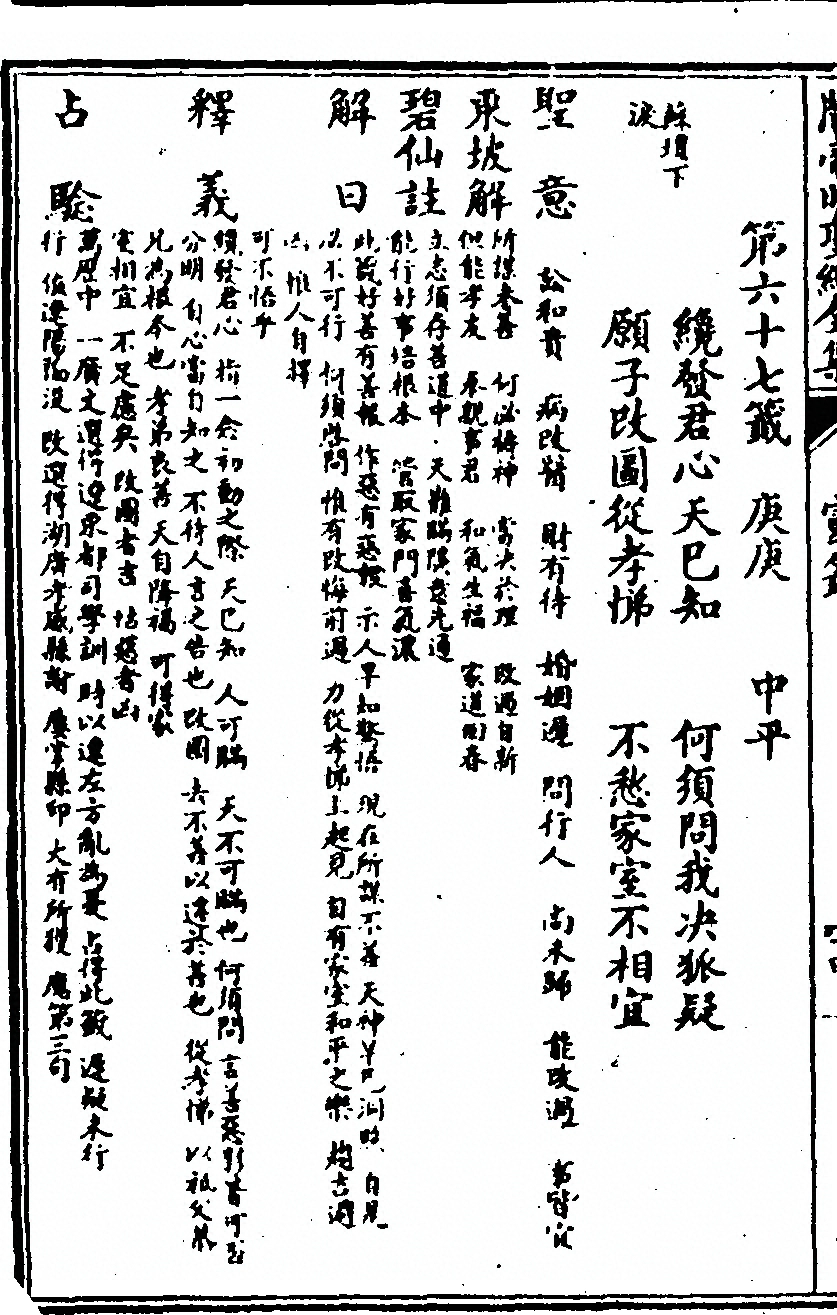 第六十七籤　庚庚　中平
纔發君心天已知　何須問我決狐疑
願子改圖從孝悌　不愁家室不相宜
蘇損下淚
聖意　訟和貴　病改醫　財有待　婚姻遲　問行人　尚未歸　能改過　事皆宜
東坡解　所謀未善　何必禱神　當決於理　改過自新
但能孝友　奉親事君　和氣生福　家道回春
碧仙註　立志須存善道中　天難瞞隱鬼先通
能行好事培根本　管取家門喜氣濃
解曰　此籤好善有善報　作惡有惡報　示人早知警悟　現在所謀不善　天神早已洞照　自是
必不可行　何須啓問　惟有改悔前過　力從孝悌上起見　自有家室和平之樂　趨吉避
凶　惟人自擇
可不悟乎
釋義　纔發君心　指一念初動之際　天已知　人可瞞　天不可瞞也　何須問　言善惡影響可
分明　自心當自知之　不待人言之告也　改圖　去不善以遷於善也　從孝悌　以祖父
兄為根本也　孝弟良善　天自降福　可得家
室相宜　不足慮矣　改圖者吉　怙惡者凶
占驗　萬歷中　一廣文選得遼東都司學訓　時以遼左方亂為憂　占得此籤　遲疑未行
行　後遼陽陷沒　改選得湖廣孝感縣諭　屢掌縣印　大有所獲　應第三句